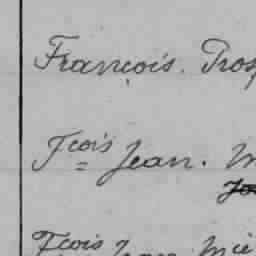 François. Pros
Fcois Jean. M
Fcois Jean Mie